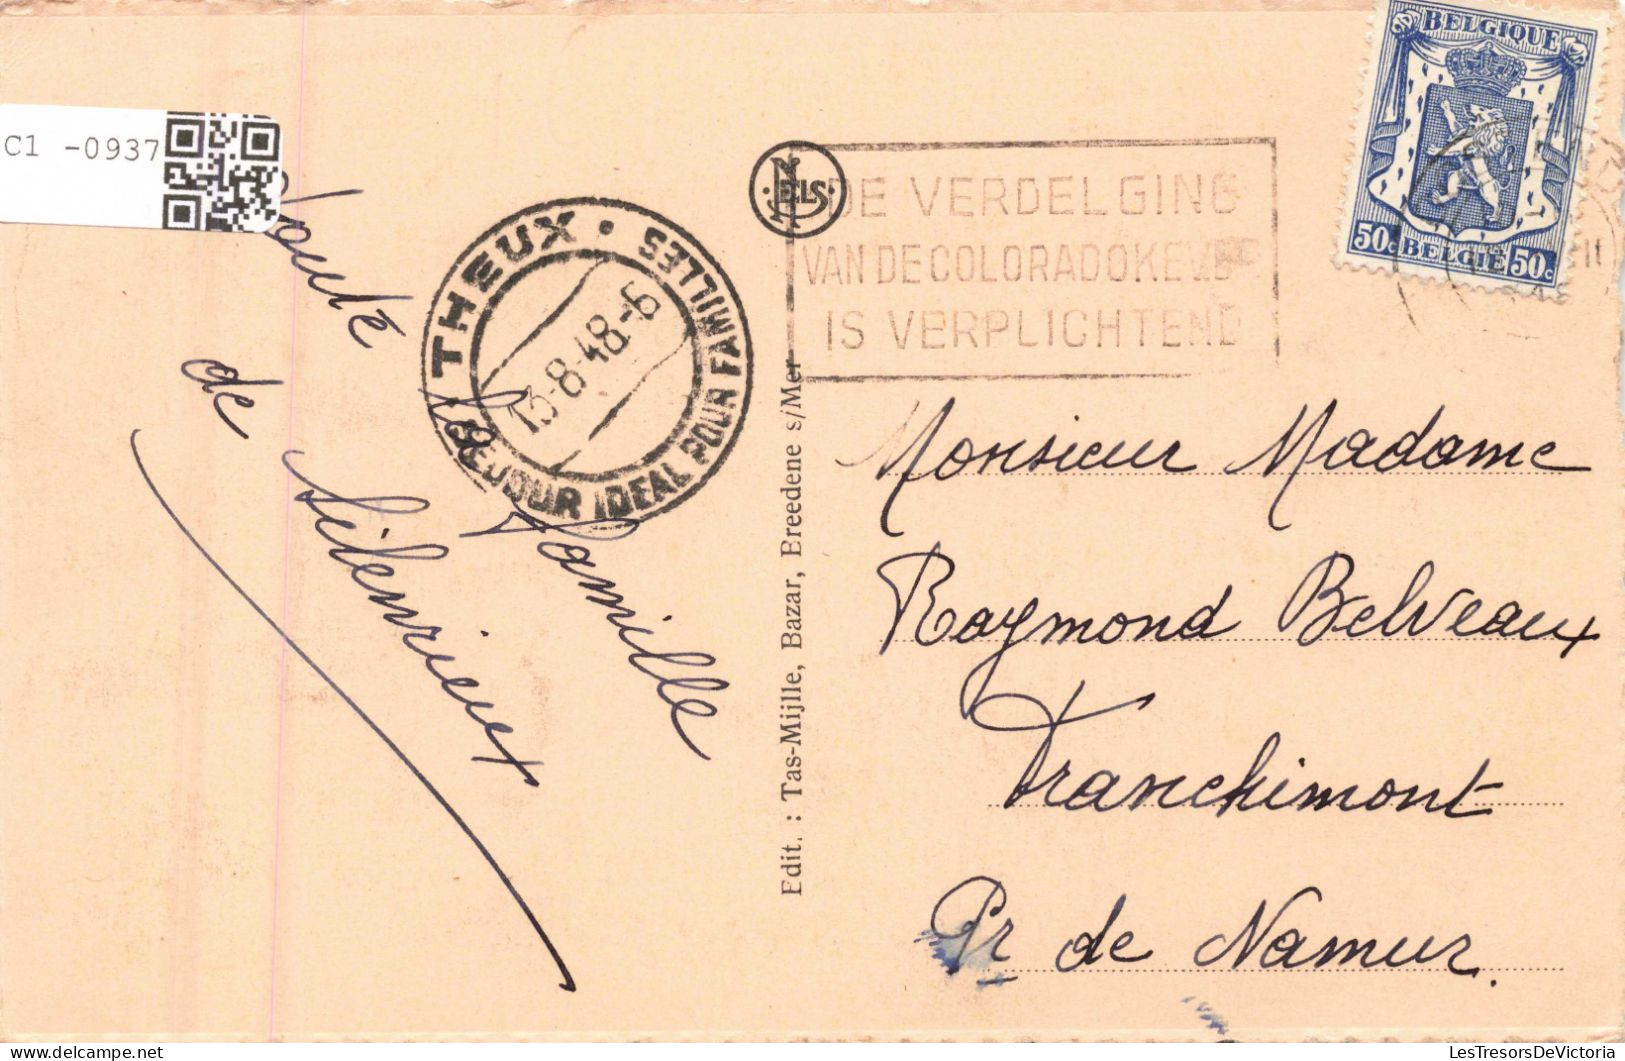 C1 -0937
Toute la Famille
de Silenrieux
THEUX •
SEJOUR IDEAL POUR FAMILLES
13-8-48-6
Edit. : Tas-Mijlle, Bazar, Breedene s/Mer
NELS
DE VERDELGING
VAN DE COLORADOKEVER
IS VERPLICHTEND
BELGIQUE
50c BELGIË 50c
Monsieur Madame
Raymond Belveaux
Franchimont
Pr de Namur.
LesTresorsDeVictoria